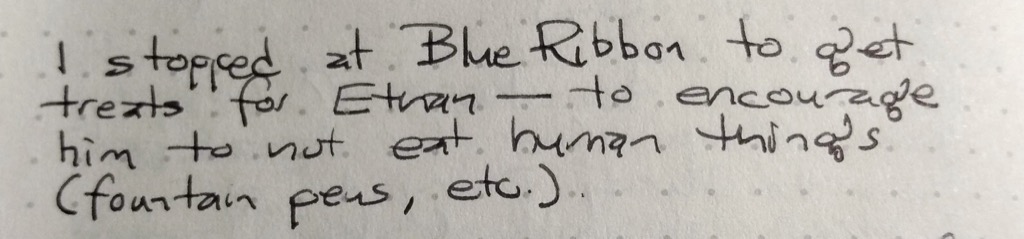 I stopped at Blue Ribbon to get
treats for Ethan — to encourage
him to not eat human things
(fountain pens, etc.).